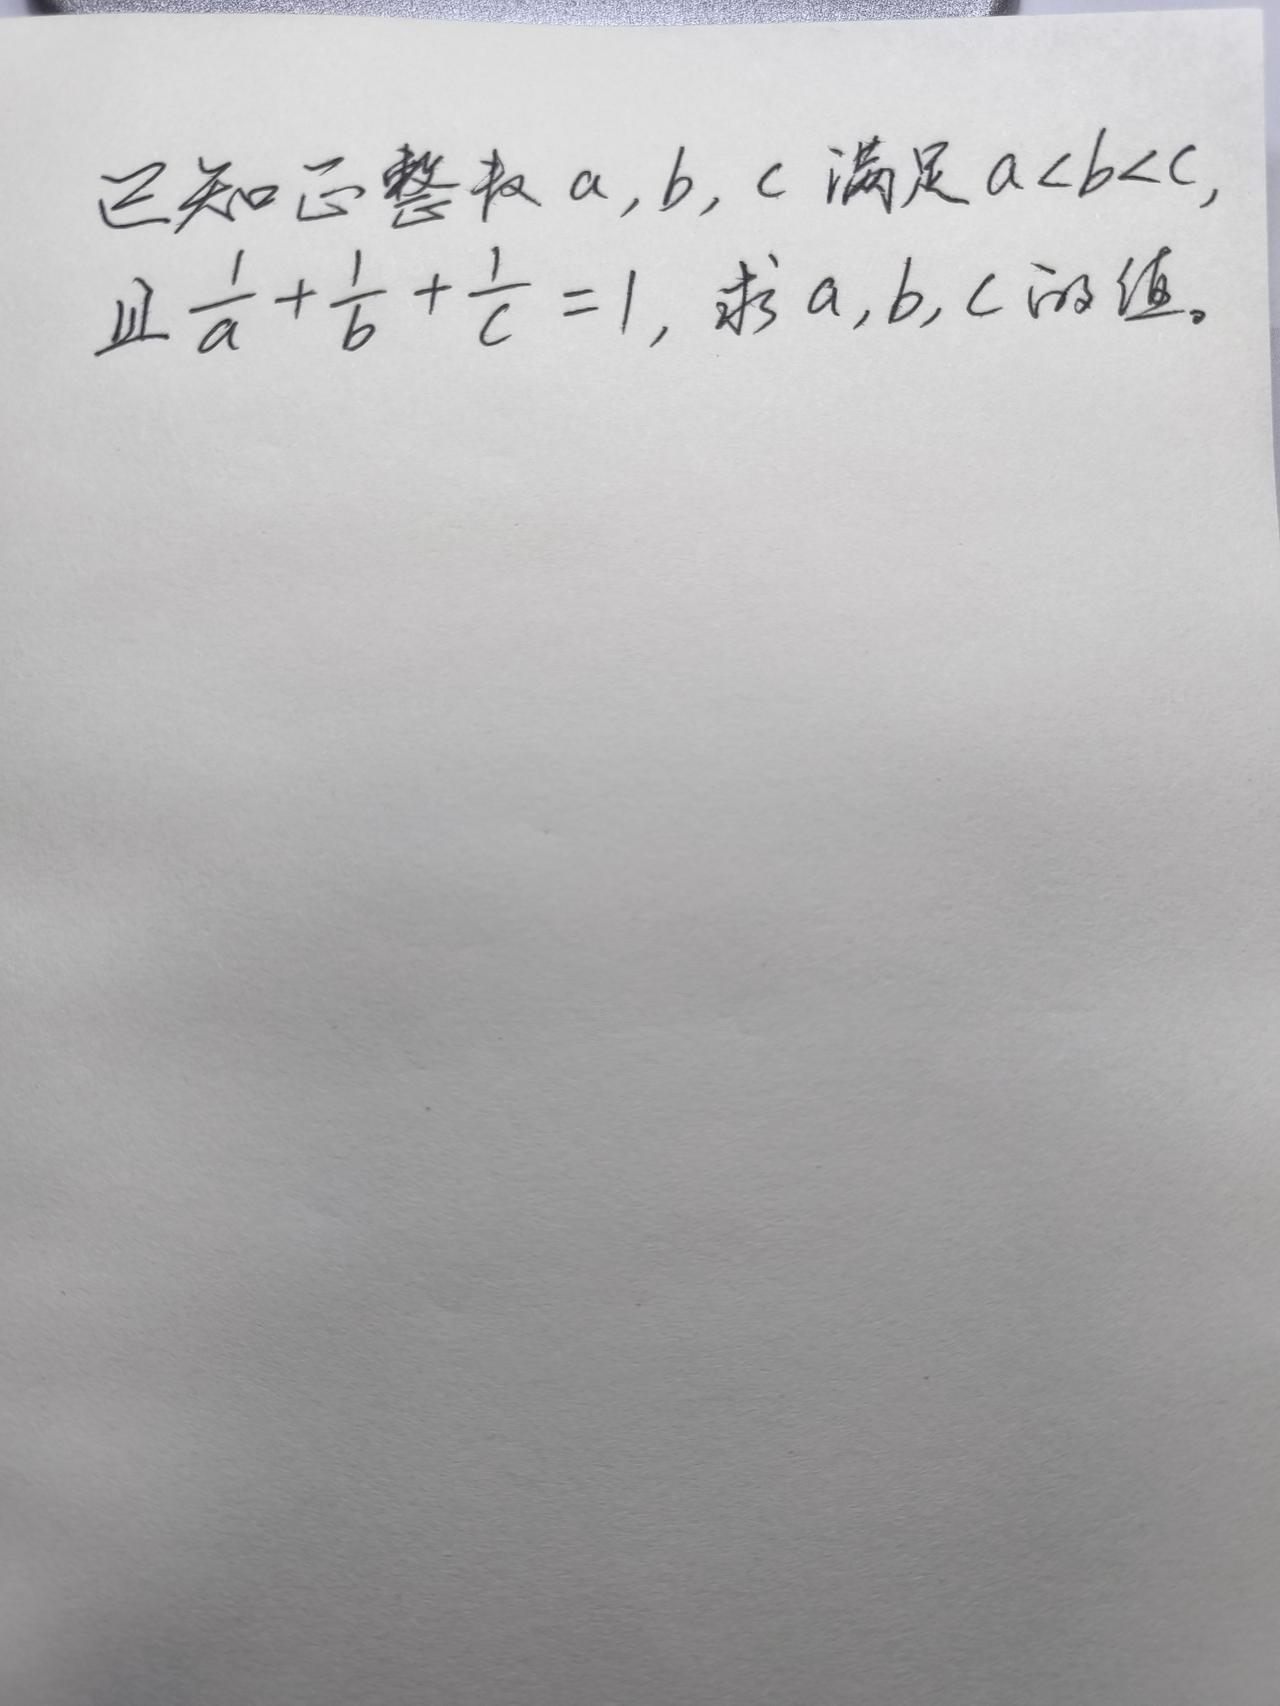 已知正整数 a, b, c 满足 a<b<c,
且 1/a + 1/b + 1/c = 1, 求 a, b, c 的值。